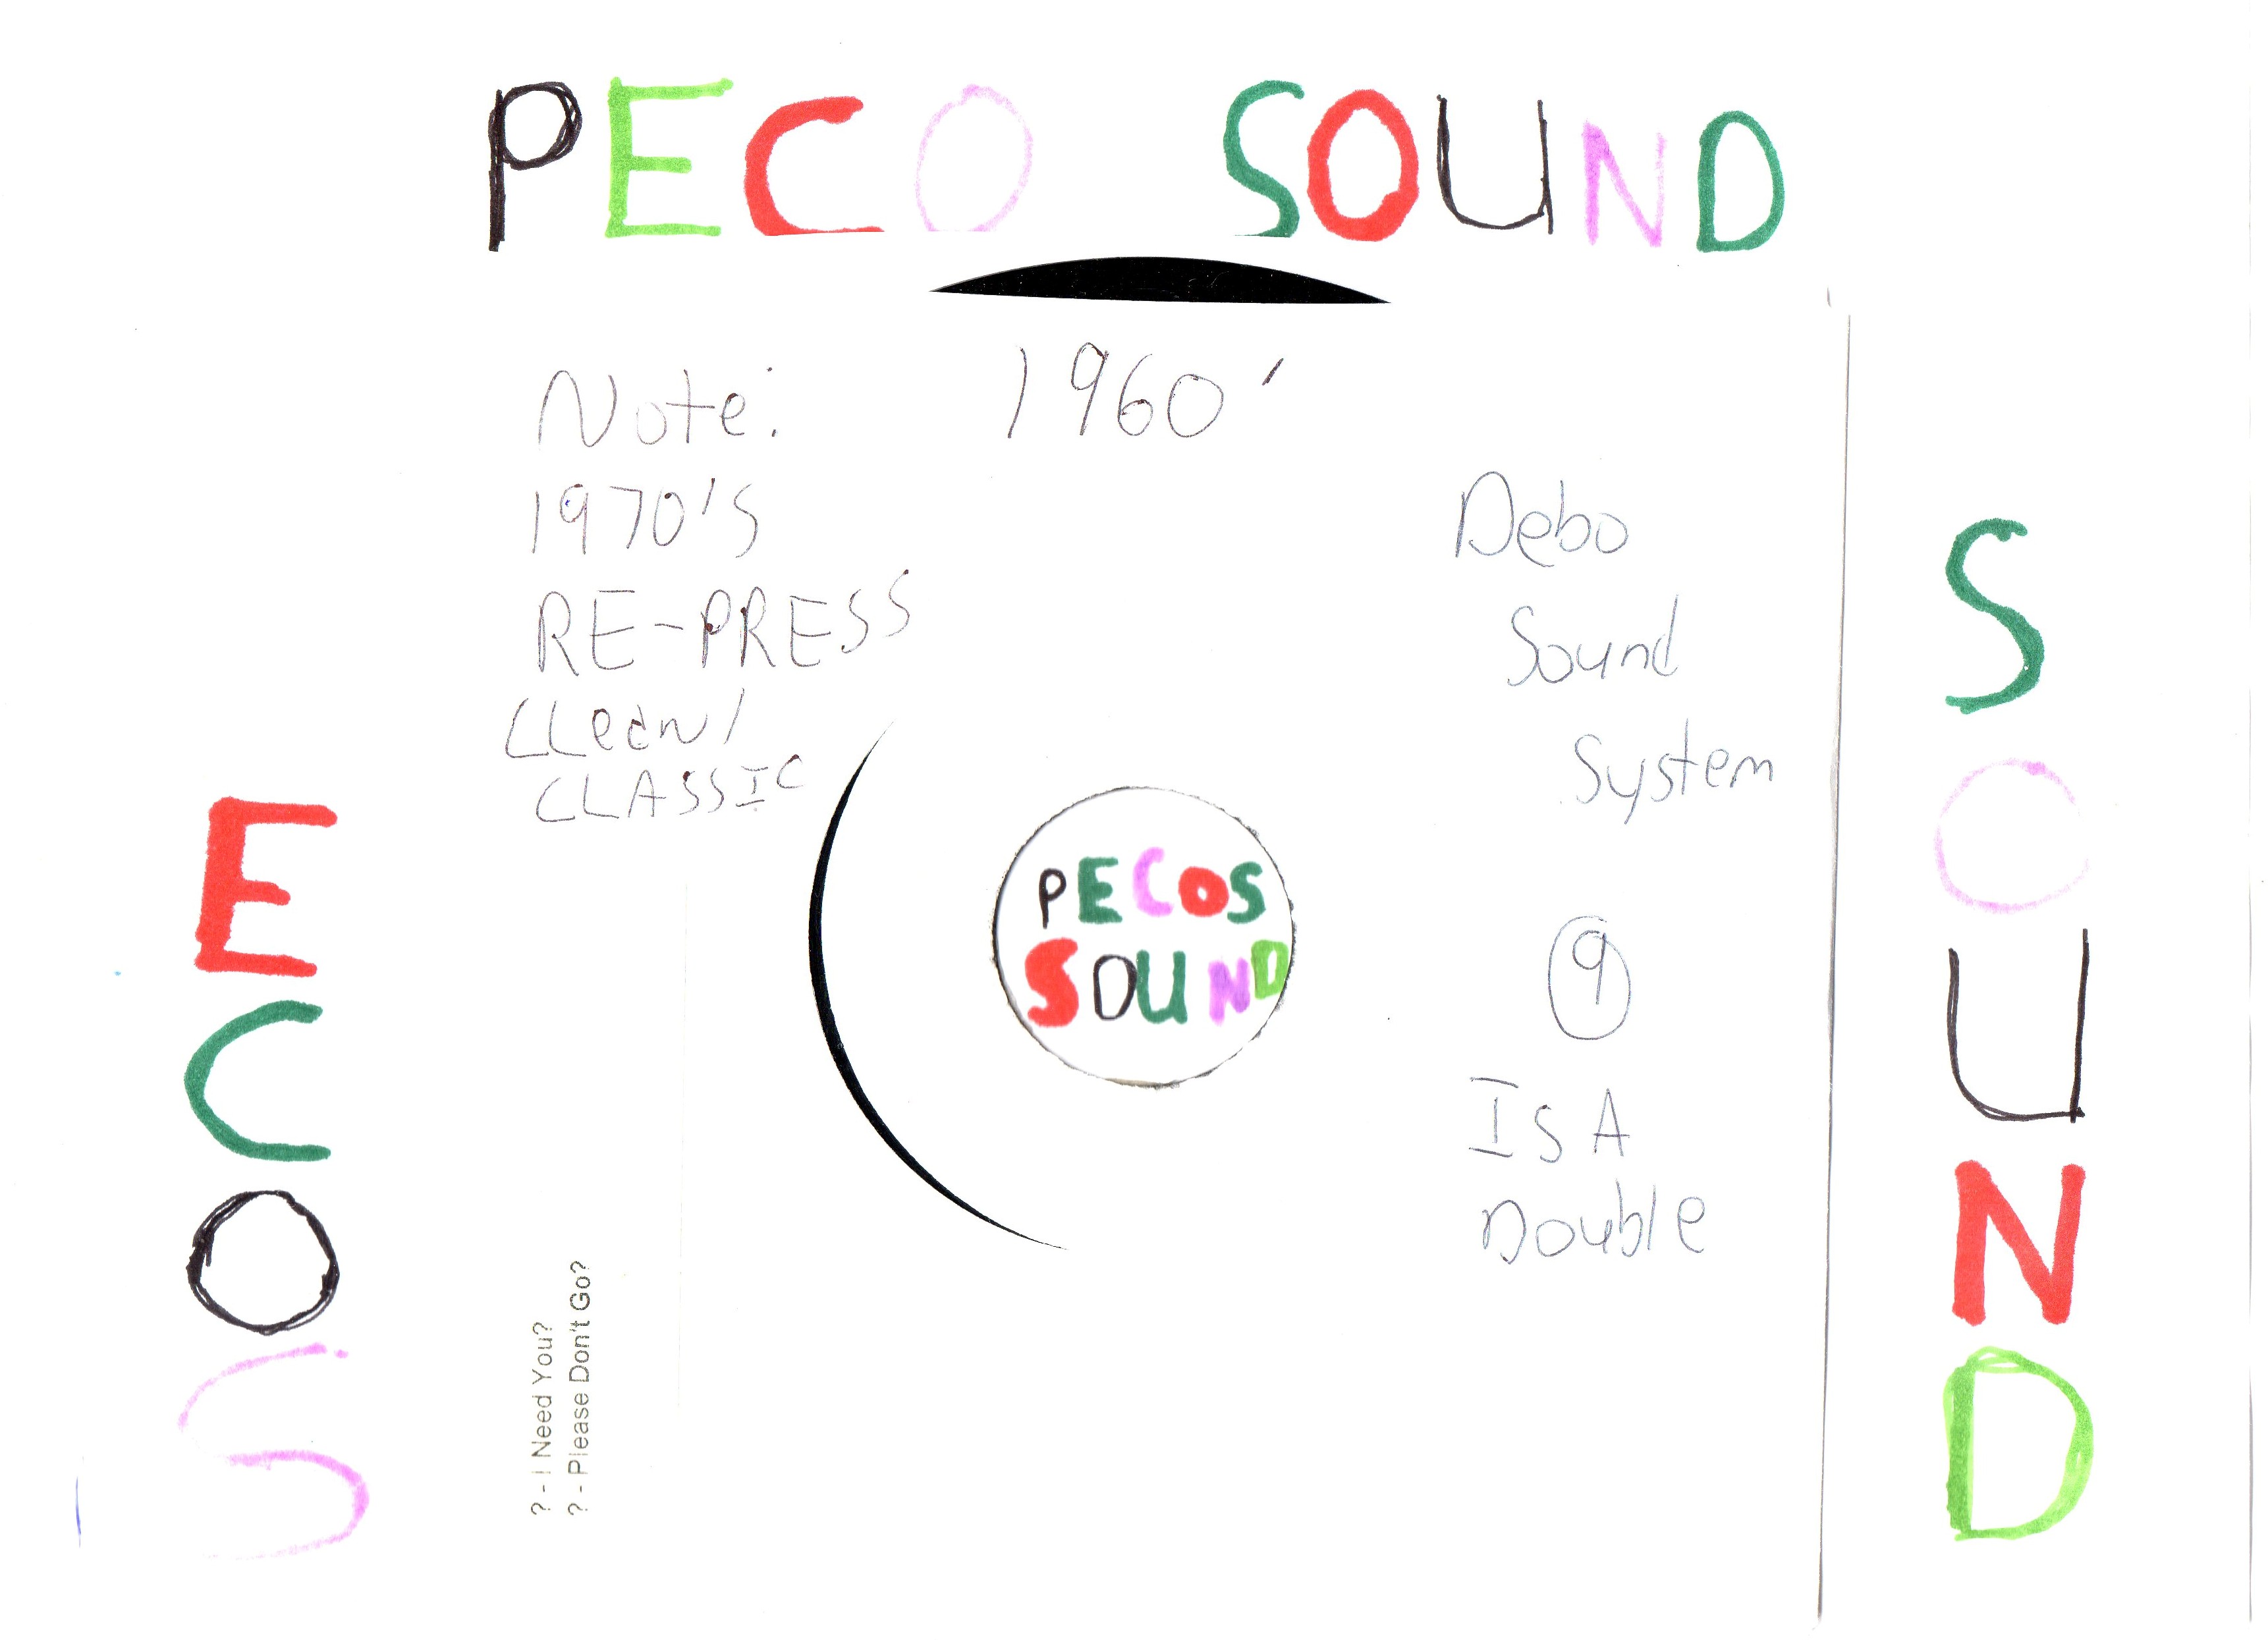 PECO SOUND
Note:
1970's
RE-PRESS
CLean/
CLASSIC
1960'
Debo
Sound
System
9
Is A
Double
PECOS
SOUND
ECOS
SOUND
? - I Need You?
? - Please Don't Go?